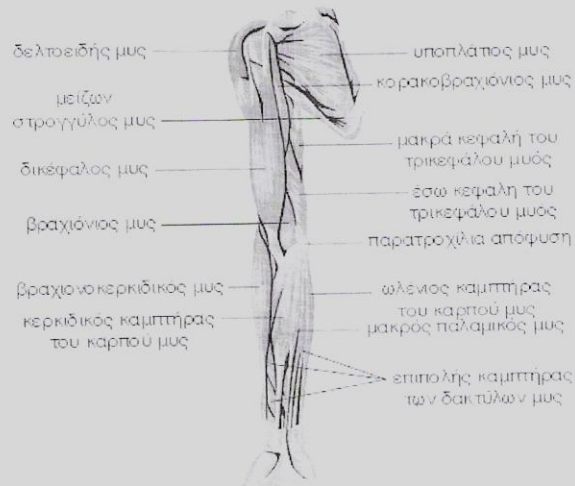 δελτοειδής μυς
μείζων
στρογγύλος μυς
δικέφαλος μυς
βραχιόνιος μυς
βραχιονοκερκιδικός μυς
κερκιδικός καμπτήρας
του καρπού μυς
υποπλάτιος μυς
κορακοβραχιόνιος μυς
μακρά κεφαλή του
τρικεφάλου μυός
έσω κεφαλη του
τρικεφάλου μυός
παρατροχίλια απόφυση
ωλένιος καμπτήρας
του καρπού μυς
μακρός παλαμικός μυς
επιπολής καμπτήρας
των δακτύλων μυς